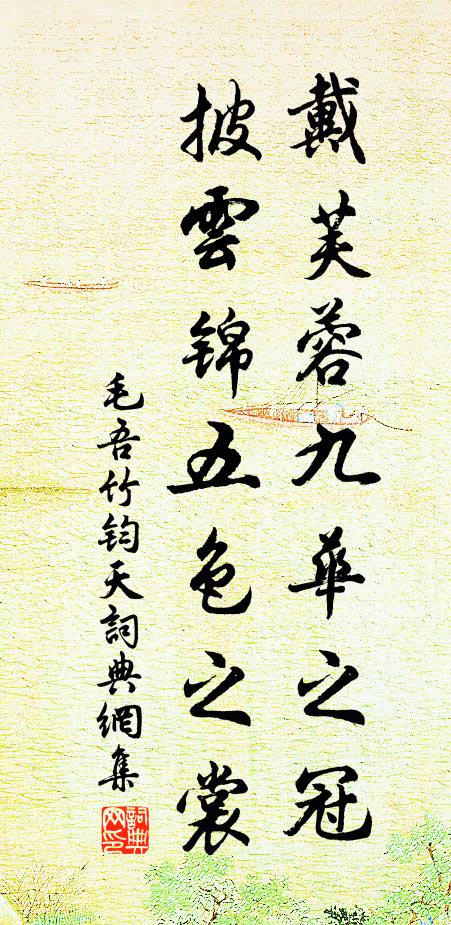 戴芙蓉九華之冠
披雲錦五色之裳
毛吾竹鈞天詞典網集
詞典網印